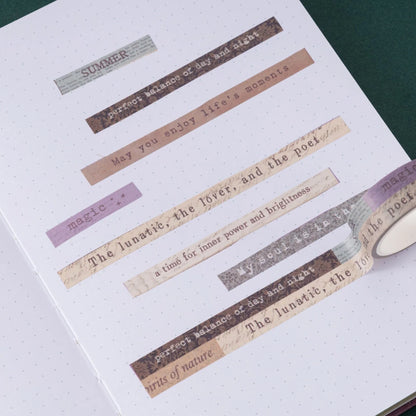 SUMMER
perfect balance of day and night
May you enjoy life's moments
The lunatic, the lover, and the poet
magic
a time for inner power and brightness
My soul is in th
magic
perfect balance of day and night
The lunatic, the lo
irits of nature